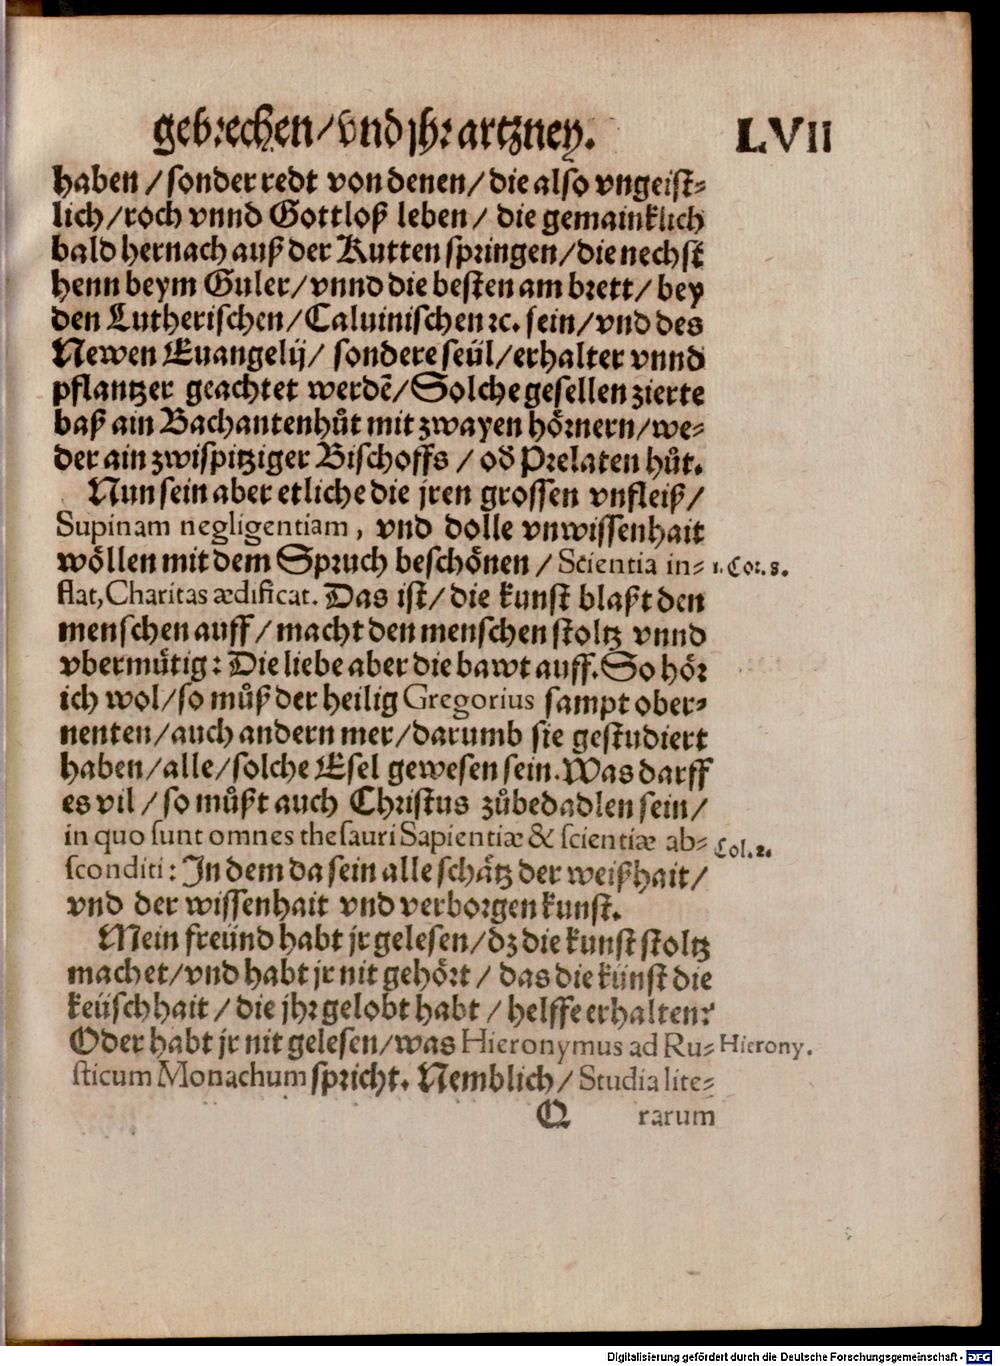 gebrechen/vnd jhr artzney. LVII
haben /sonder redt von denen/die also vngeist⸗
lich/roch vnnd Gottloß leben/ die gemainklich
bald hernach auß der Kutten springen/die nechst
henn beym Guler/vnnd die besten am brett/bey
den Lutherischen/Caluinischen ꝛc. sein/vnd des
Newen Euangelij/ sondere seül/erhalter vnnd
pflantzer geachtet werdē/Solche gesellen zierte
baß ain Bachantenhuͤt mit zwayen hoͤrnern/we⸗
der ain zwispitziger Bischoffs /od̕ Prelaten huͤt.
Nun sein aber etliche die jren grossen vnfleiß/
Supinam negligentiam, vnd dolle vnwissenhait
woͤllen mit dem Spruch beschoͤnen /Scientia in⸗ 1. Cor. 8.
flat, Charitas ædificat. Das ist/die kunst blaßt den
menschen auff/macht den menschen stoltz vnnd
vbermuͤtig: Die liebe aber die bawt auff. So hoͤr
ich wol/so muͤß der heilig Gregorius sampt ober⸗
nenten/auch andern mer/darumb sie gestudiert
haben/alle/solche Esel gewesen sein. Was darff
es vil /so muͤßt auch Christus zuͤbedadlen sein/
in quo sunt omnes thesauri Sapientiæ & scientiæ ab⸗ Col. 2.
sconditi: In dem da sein alle schaͤtz der weißhait/
vnd der wissenhait vnd verborgen kunst.
Mein freünd habt jr gelesen/dz die kunst stoltz
machet/vnd habt jr nit gehoͤrt /das die künst die
keüschhait /die jhr gelobt habt /helffe erhalten?
Oder habt jr nit gelesen/was Hieronymus ad Ru⸗ Hierony.
sticum Monachum spricht. Nemblich/Studia lite⸗
Q rarum
Digitalisierung gefördert durch die Deutsche Forschungsgemeinschaft - DFG